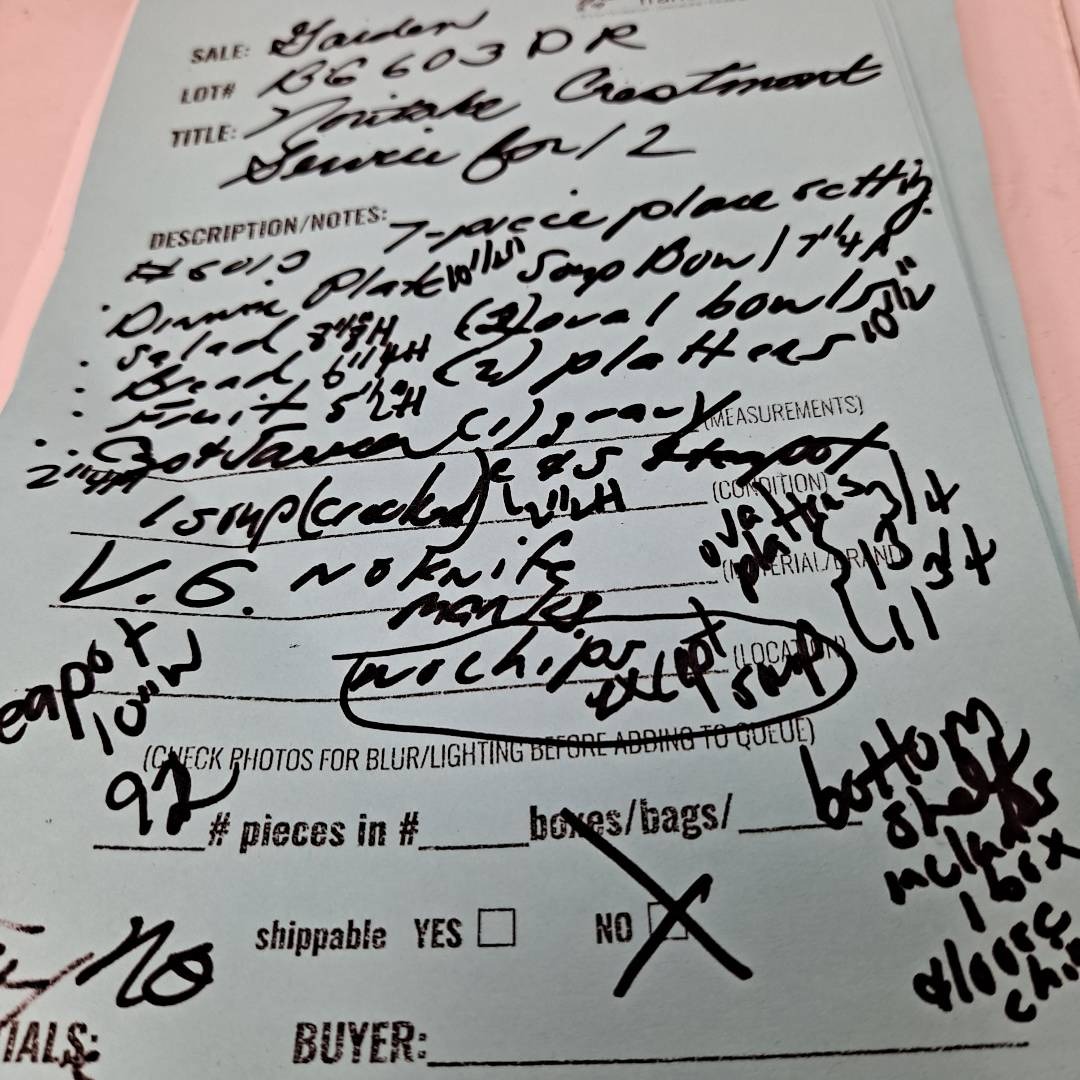 SALE: Garden
LOT# BG 603 DR
TITLE: Noritake Crestmont
Service for 12
DESCRIPTION/NOTES: 7-piece place setting
#6013
• Dinner Plate 10" Soup Bowl 7 1/4
• Salad 8 H (3) oval bowls
• Bread 6 1/4 H (2) platters 10" W
• Fruit 5 1/2 H
(1) gravy (MEASUREMENTS)
2"
1 soup (cracked) teapot (CONDITION)
oval platters
V.G. no knife (MATERIAL/BRAND)
marks
no chips except soup (LOCATION)
teapot
10" W
(CHECK PHOTOS FOR BLUR/LIGHTING BEFORE ADDING TO QUEUE)
92 # pieces in #____ boxes/bags/____
bottom
shelf
includes
1 box
loose
shippable YES NO X
No
INITIALS: BUYER: